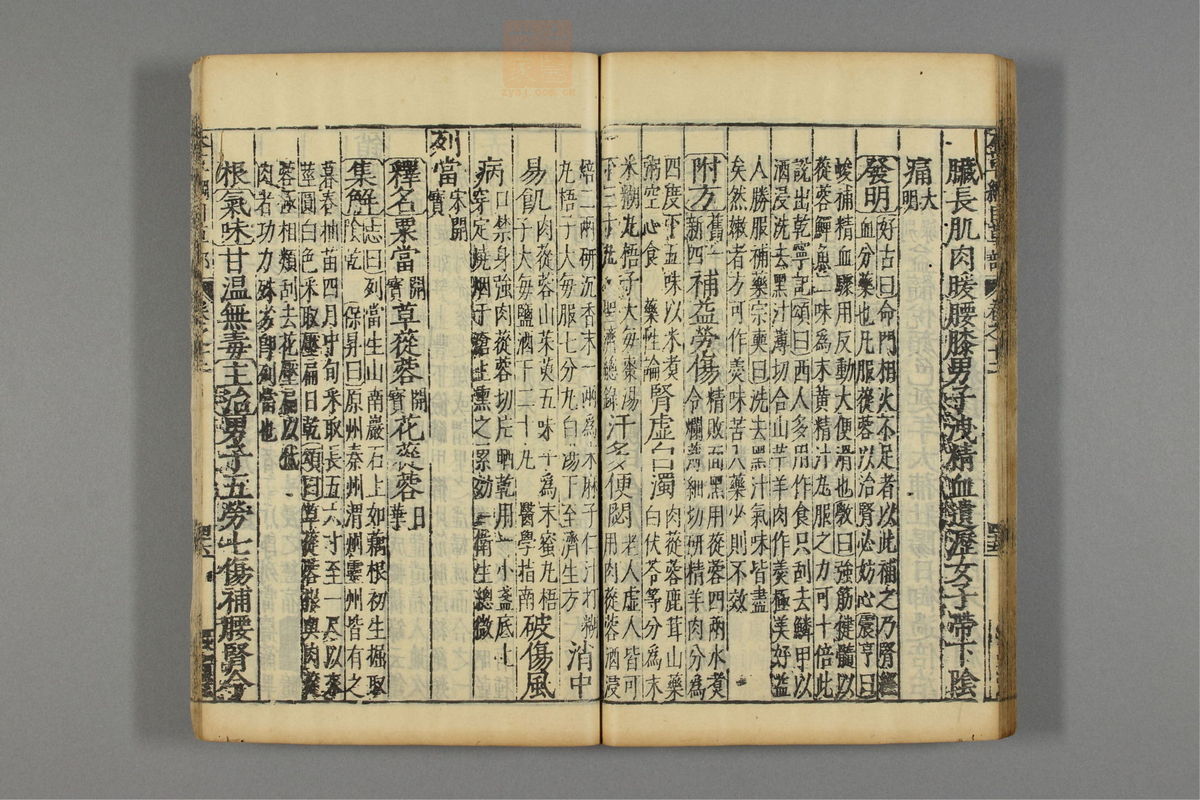 臟長肌肉暖腰膝男子洩精血遺瀝女子帶下陰
痛大明
發明好古曰命門相火不足者以此補之乃腎經
血分藥也凡服蓯蓉以治腎必妨心震亨曰
峻補精血驟用反動大便滑也斆曰強筋健髓以
蓯蓉鱓魚二味爲末黃精汁丸服之力可十倍此
說出乾寧記頌曰西人多用作食只刮去鱗甲以
酒浸洗去黑汁薄切合山芋羊肉作羹極美好益
人勝服補藥宗奭曰洗去黑汁氣味皆盡
矣然嫩者方可作羹味苦入藥少則不效
附方舊一新四補益勞傷精敗面黑用蓯蓉四兩水煮
令爛薄細切研精羊肉分爲
四度下五味以米煮
粥空心食 藥性論腎虛白濁肉蓯蓉鹿茸山藥
白伏苓等分爲末
米糊丸梧子大每棗湯
下三十丸 聖濟總錄汗多便閟老人虛人皆可
用肉蓯蓉酒浸
焙二兩研沉香末一兩爲末麻子仁汁打糊
丸梧子大每服七分丸白湯下 濟生方消中
易飢肉蓯蓉山茱萸五味子爲末蜜丸梧
子大每鹽酒下二十丸 醫學指南破傷風
病口禁身強肉蓯蓉切片晒乾用一小盞底上
穿定燒烟于瘡上熏之累效 衛生總微
列當宋開寶
釋名栗當開寶草蓯蓉開寶花蓯蓉日華
集解志曰列當生山南巖石上如藕根初生掘取
陰乾 保昇曰原州秦州渭州靈州皆有之
暮春抽苗四月中旬采取長五六寸至一尺以來
莖圓白色采取壓扁日乾頌曰草蓯蓉根與肉蓯
蓉極相類刮去花壓扁以代
肉者功力殊劣即列當也
根氣味甘溫無毒主治男子五勞七傷補腰腎令